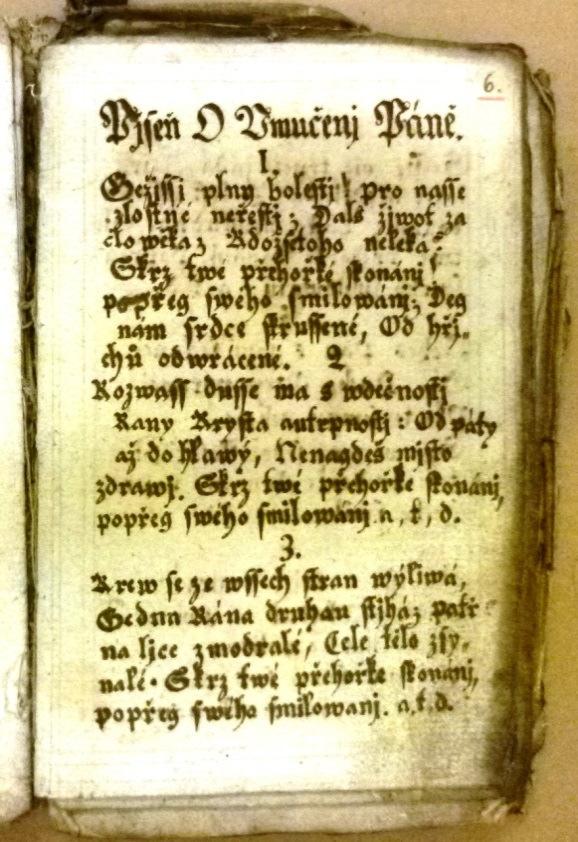 6.
Pjseň O Vmučenj Páně.
1
Gežissi plny bolesti! pro nasse
zlostné neřesti; Dals žiwot za
člowěka;
Skrz twé přehořké skonánj!
popřeg swého smilowánj; Deg
nám srdce skrussené, Od hřj-
chů odwrácené. 2
Rozwass dusse má s wděčnosti
Rany Krysta autrpnosti: Od paty
až do hlawy, Nenagdeš mjsto
zdrawj. Skrz twé přehořké skonánj,
popřeg swého smilowánj. a, t, d.
3.
Krew se ze wssech stran wýliwá,
Gednu Rána druhau stjhá; patř
na ljce zmodralé, Celé tělo zsy-
nalé. Skrz twé přehořké skonánj,
popřeg swého smilowanj. a, t, d.